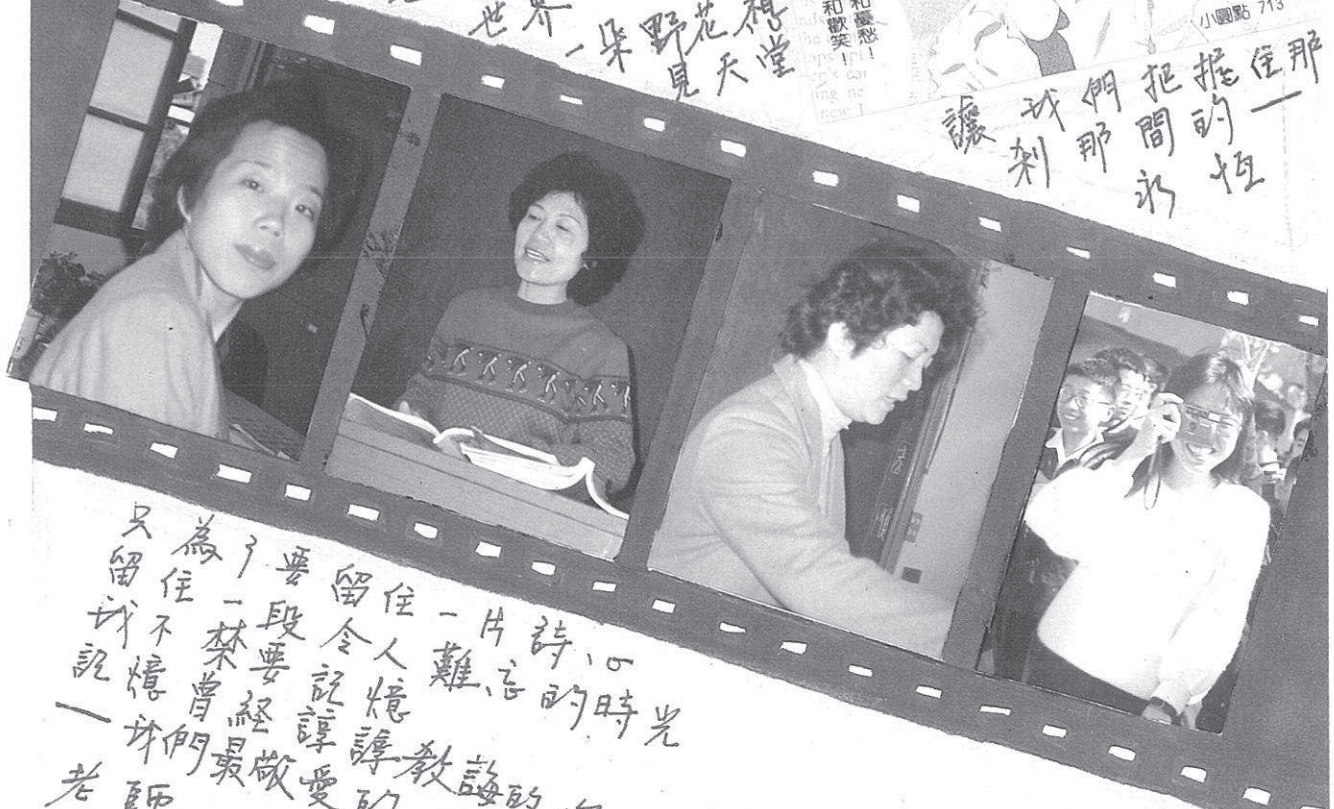 世界
一朵野花想
見天堂
和憂愁！
和歡笑！
小圓點 713
讓我們把握住那
剎那間的一
永恆
只為了要留住一片詩心
留住一段令人難忘的時光
我不禁要記憶
記憶曾経諄諄教誨的
—我們最敬愛的
老師